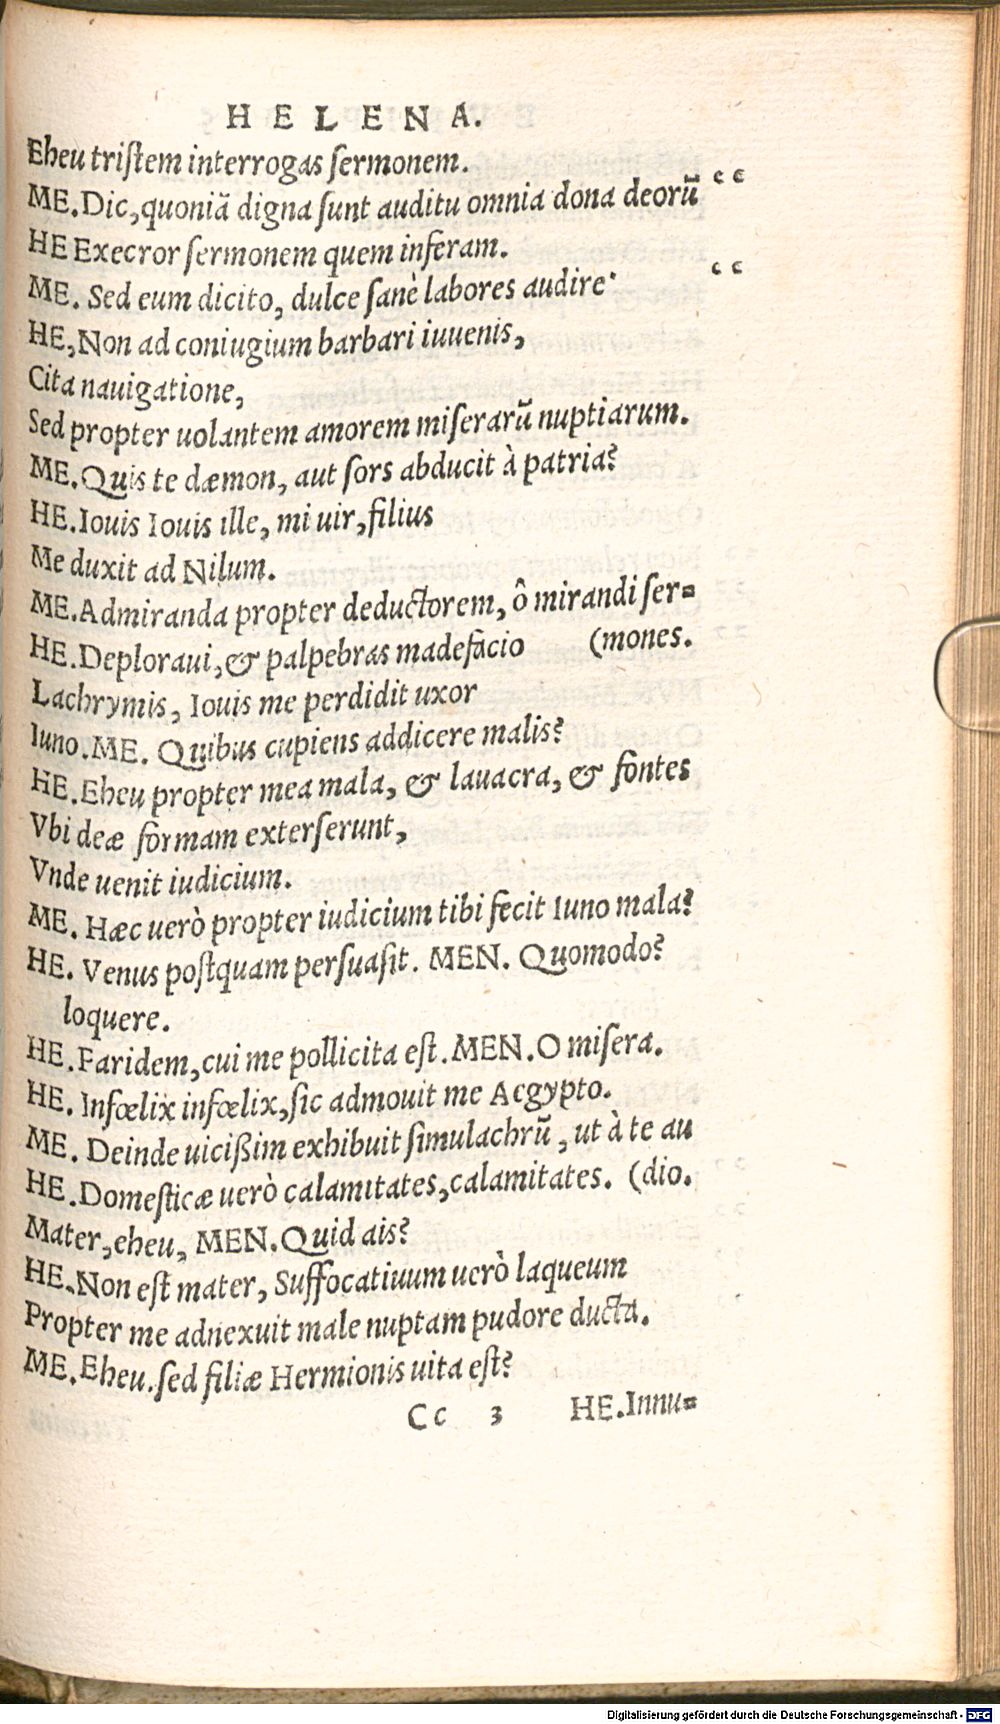 HELENA.
Eheu tristem interrogas sermonem.
ME. Dic, quoniã digna sunt auditu omnia dona deorũ “
HE Execror sermonem quem inferam.
ME. Sed eum dicito, dulce sanè labores audire. “
HE, Non ad coniugium barbari iuuenis,
Cita nauigatione,
Sed propter uolantem amorem miserarũ nuptiarum.
ME. Quis te dæmon, aut sors abducit à patria?
HE. Iouis Iouis ille, mi uir, filius
Me duxit ad Nilum.
ME. Admiranda propter deductorem, ô mirandi ser-
HE. Deploraui, & palpebras madefacio (mones.
Lachrymis, Iouis me perdidit uxor
Iuno. ME. Quibus cupiens addicere malis?
HE. Eheu propter mea mala, & lauacra, & fontes
Vbi deæ formam exterserunt,
Vnde uenit iudicium.
ME. Hæc uerò propter iudicium tibi fecit Iuno mala?
HE. Venus postquam persuasit. MEN. Quomodo?
loquere.
HE. Paridem, cui me pollicita est. MEN. O misera.
HE. Infœlix infœlix, sic admouit me Aegypto.
ME. Deinde uicißim exhibuit simulachrũ, ut à te au
HE. Domesticæ uerò calamitates, calamitates. (dio.
Mater, eheu, MEN. Quid ais?
HE. Non est mater, Suffocatiuum uerò laqueum
Propter me adnexuit male nuptam pudore ducta.
ME. Eheu. sed filiæ Hermionis uita est?
Cc 3 HE. Innu-
Digitalisierung gefördert durch die Deutsche Forschungsgemeinschaft - DFG